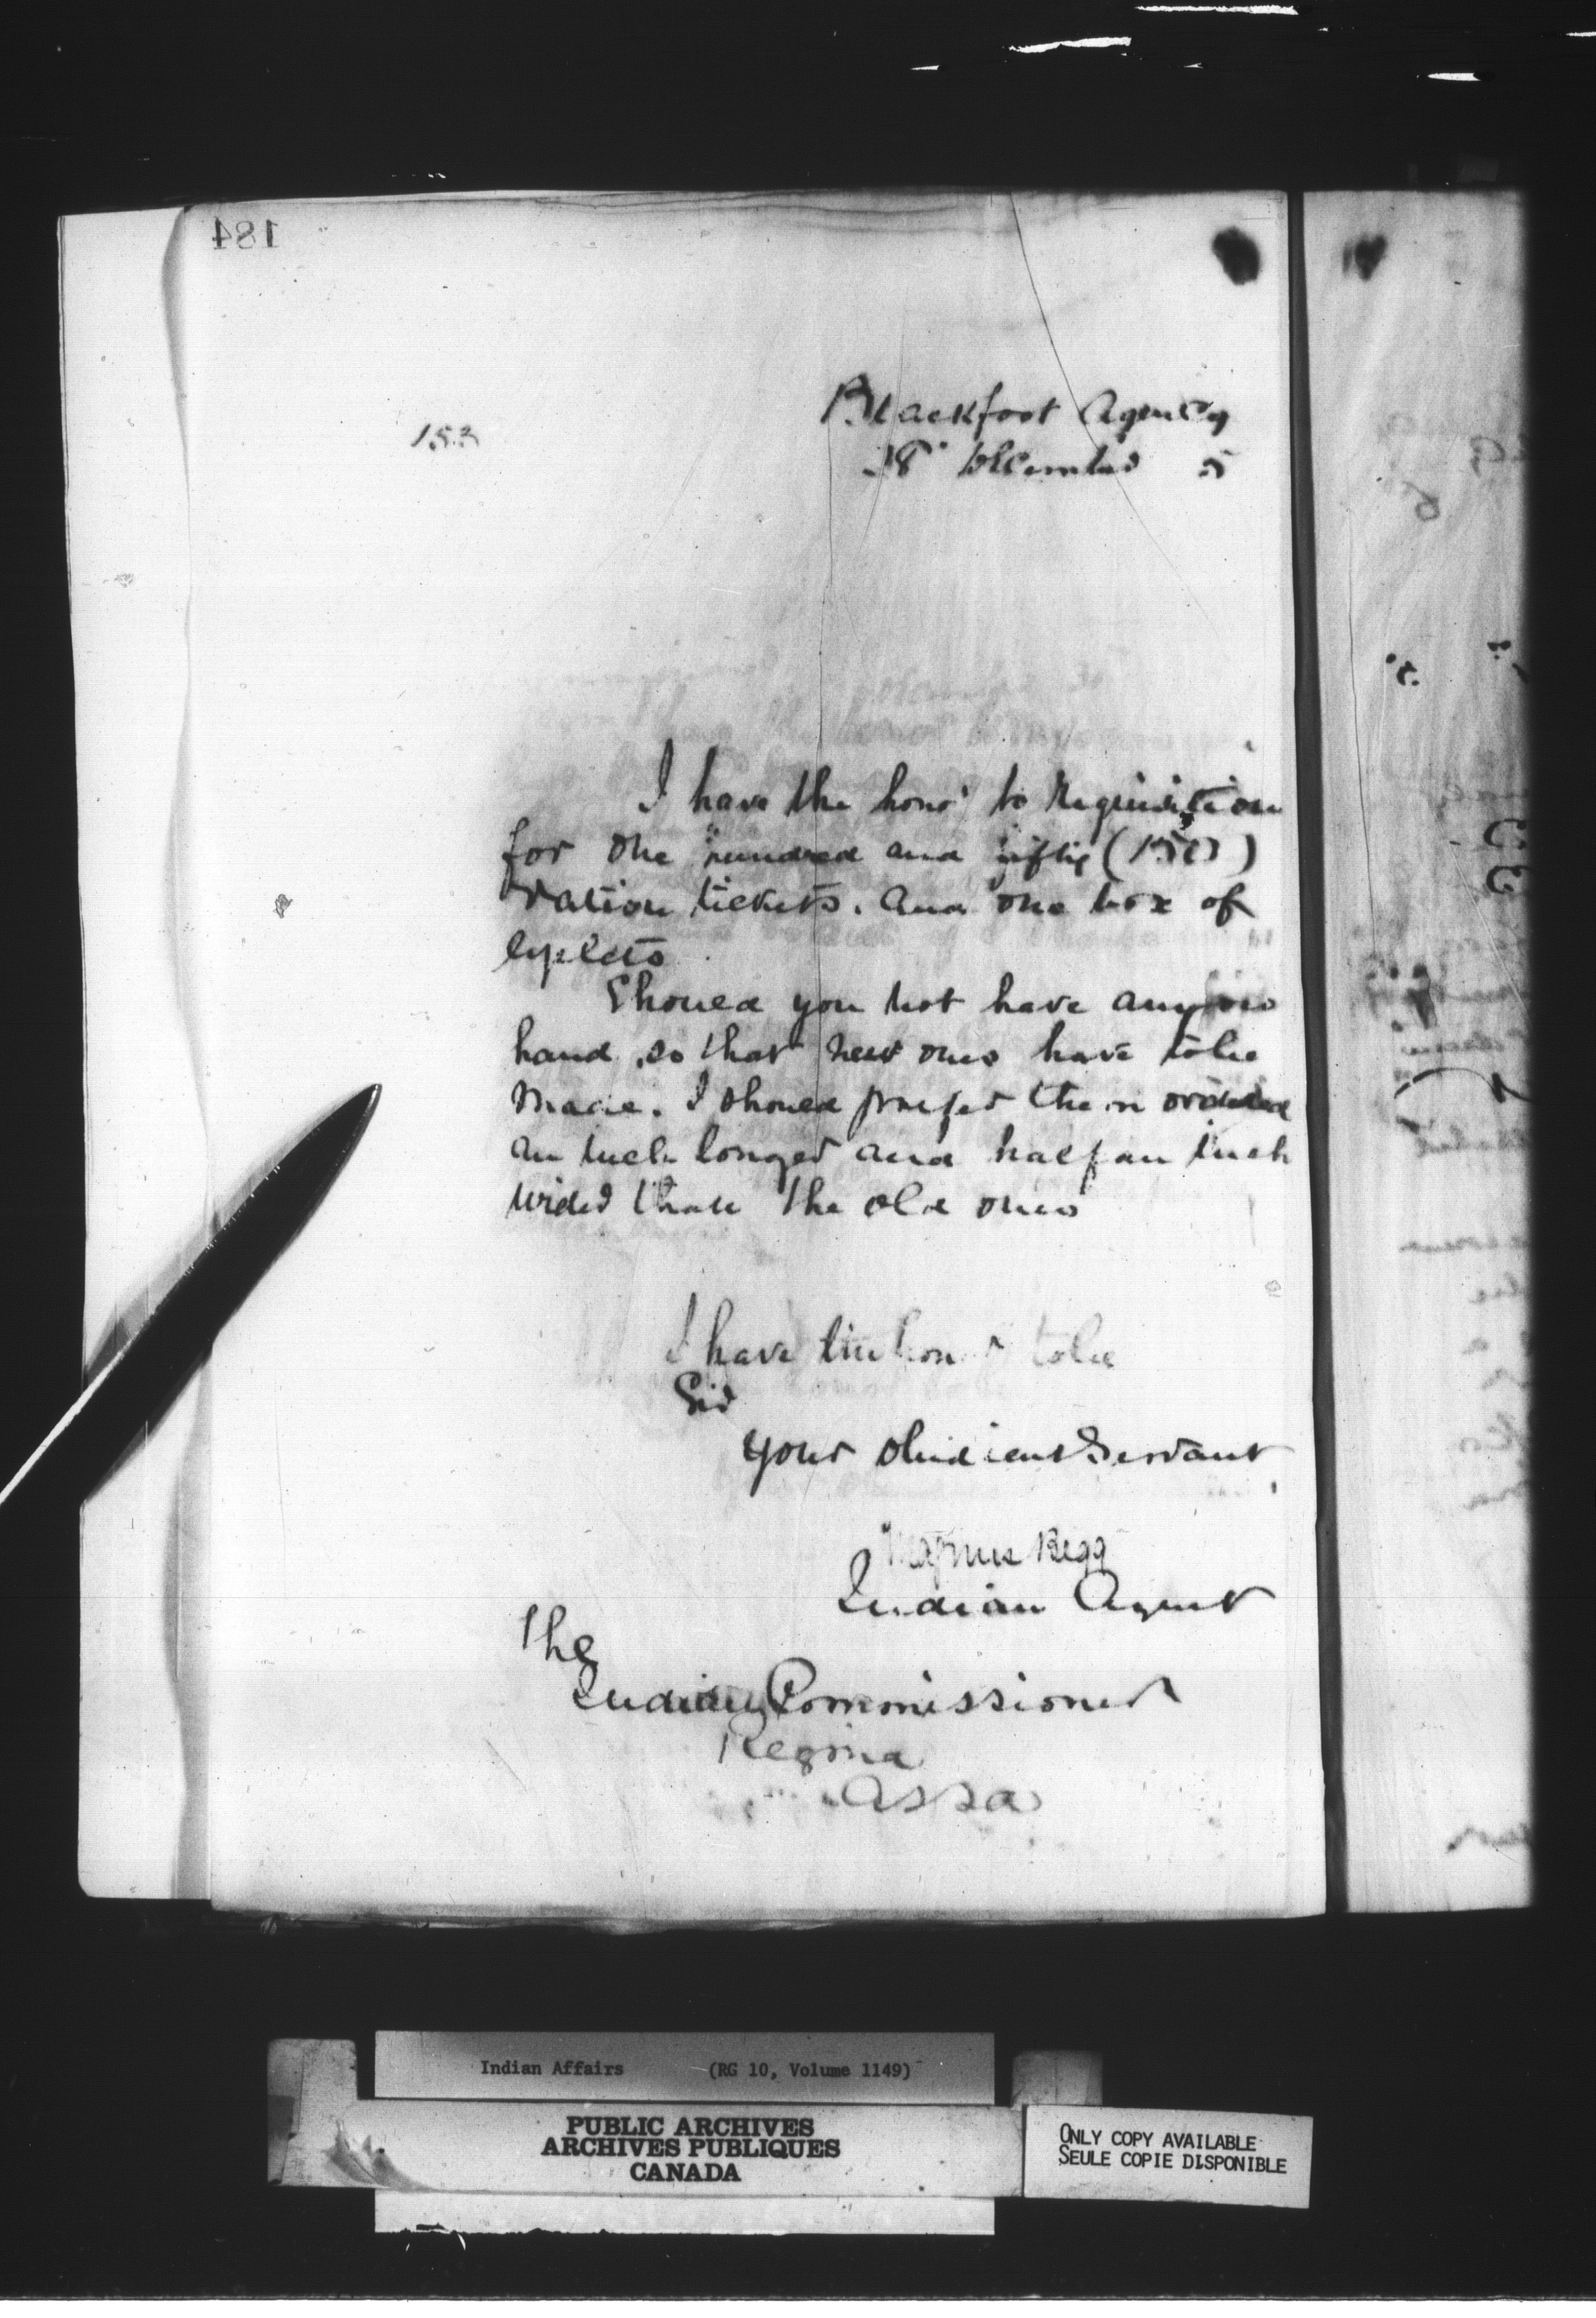 184
153
Blackfoot Agency
28" December 5
I have the honor to requisition
for one hundred and fifty (150)
ration tickets. and one box of
eyelets
Should you not have any on
hand, so that new ones have to be
made. I should prefer them ordered
an inch longer and half an inch
wider than the old ones
I have the honor to be
Sir
Your obedient Servant
Magnus Begg
Indian Agent
The
Indian Commissioner
Regina
Assa
Indian Affairs (RG 10, Volume 1149)
PUBLIC ARCHIVES
ARCHIVES PUBLIQUES
CANADA
ONLY COPY AVAILABLE
SEULE COPIE DISPONIBLE